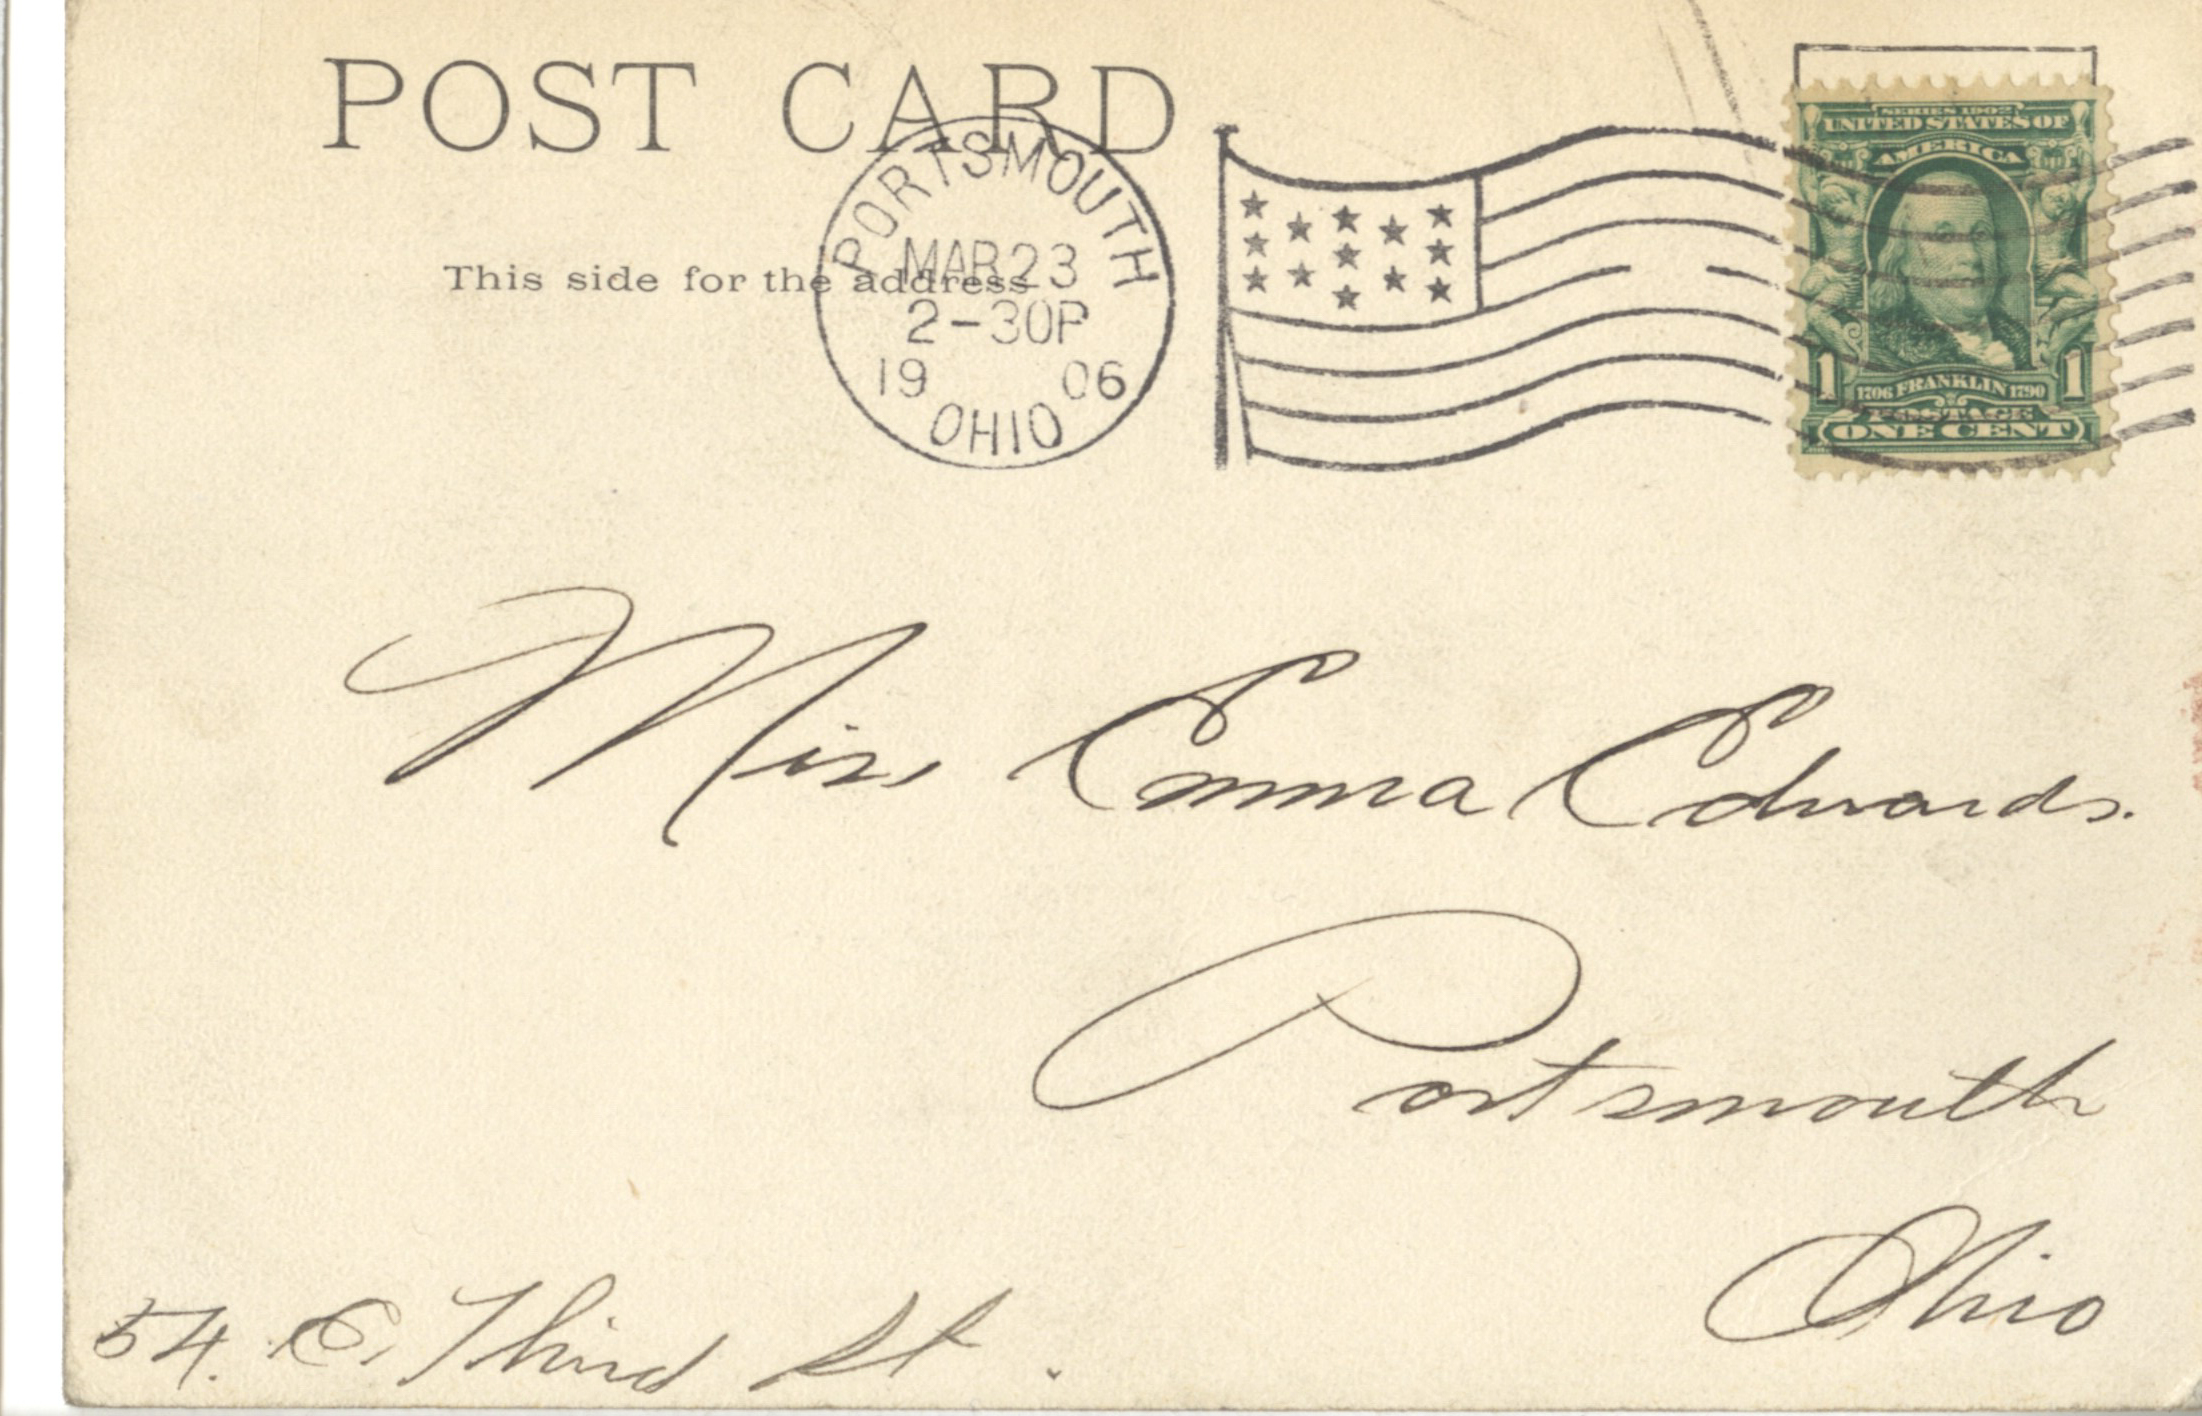 POST CARD
This side for the address
PORTSMOUTH
MAR 23
2-30P
19 06
OHIO
SERIES 1902
UNITED STATES OF
AMERICA
1 1706 FRANKLIN 1790 1
POSTAGE
ONE CENT
Miss Emma Edwards.
Portsmouth
Ohio
54. E. Third St.